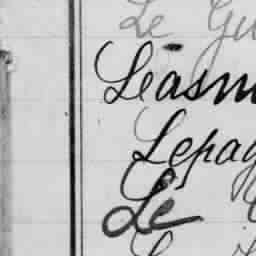 Le Gu
Léasm
Lepag
Le